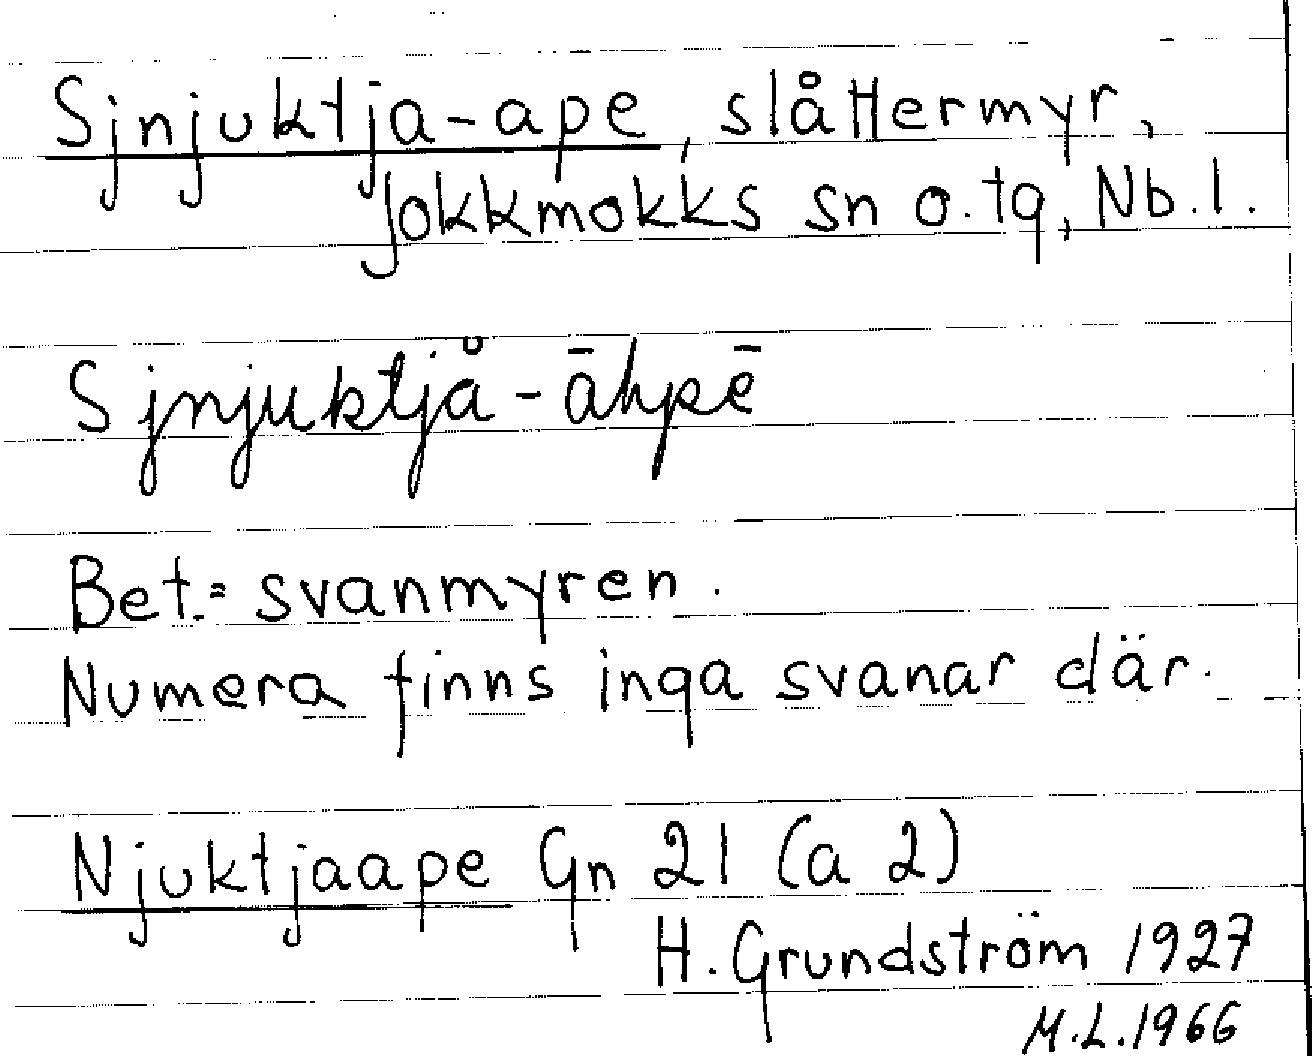 Sjnjuktja-ape, slåttermyr,
Jokkmokks sn o. tg, Nb. l.
Sjnjuktjå̆-āhpē
Bet. = svanmyren.
Numera finns inga svanar där.
Njuktjaape Gn 21 (a 2)
H. Grundström 1927
M.L. 1966